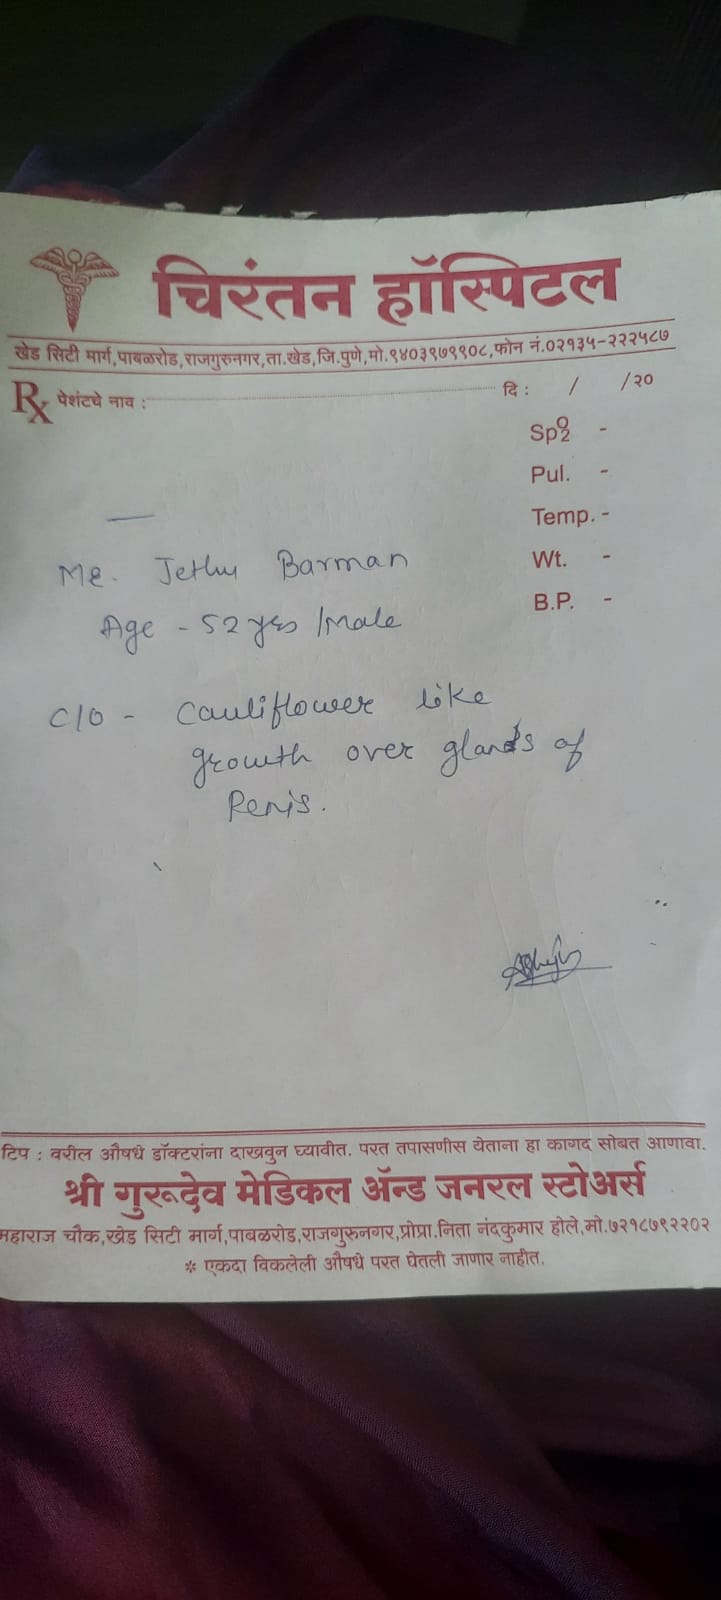 चिरंतन हॉस्पिटल
खेड सिटी मार्ग,पाबळरोड,राजगुरुनगर,ता.खेड,जि.पुणे,मो.९४०३९७९९०८,फोन नं.०२१३५-२२२५८७
Rx पेशंटचे नाव : दि : / /२०
SpO2 -
Pul. -
Temp. -
Wt. -
B.P. -
Mr. Jethu Barman
Age - 52 yrs /male
C/O - Cauliflower like
growth over glands of
Penis.
टिप : वरील औषधे डॉक्टरांना दाखवुन घ्यावीत. परत तपासणीस येताना हा कागद सोबत आणावा.
श्री गुरूदेव मेडिकल ॲन्ड जनरल स्टोअर्स
महाराज चौक,खेड सिटी मार्ग,पाबळरोड,राजगुरुनगर,प्रोप्रा.निता नंदकुमार होले,मो.७२१८७९२२०२
* एकदा विकलेली औषधे परत घेतली जाणार नाहीत.